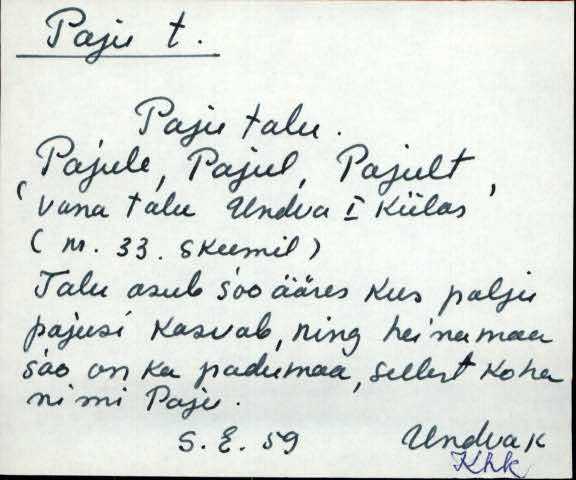 Paju t.
Paju talu.
Pajule, Pajul, Pajult,
'vana talu Undva I külas'
(nr. 33. skeemil)
Talu asub soo ääres kus palju
pajusi kasvab, ning heinamaa
soo on ka padumaa, sellest koha
nimi Paju.
S. E. 59 Undva k
Khk